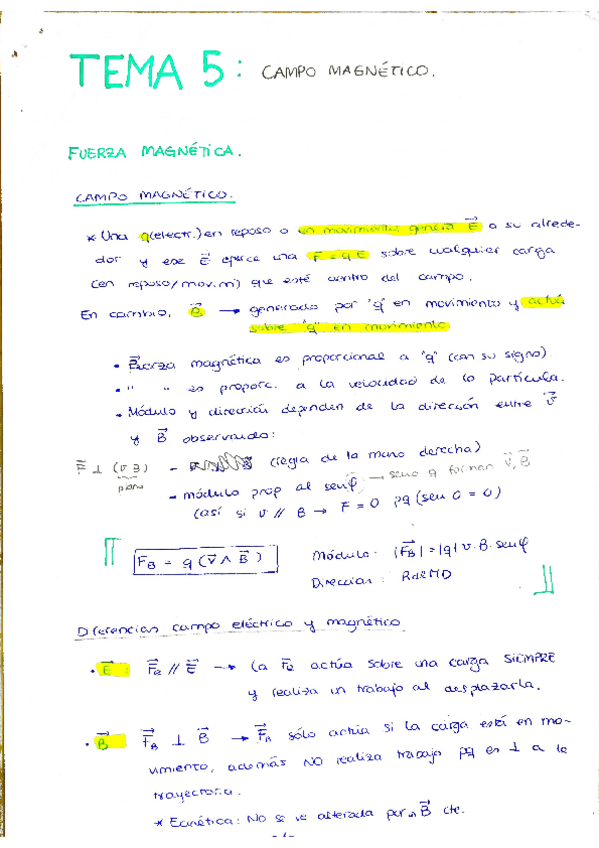 TEMA 5: CAMPO MAGNÉTICO.
FUERZA MAGNÉTICA.
CAMPO MAGNÉTICO.
* Una q(electr.) en reposo o en movimiento genera E⃗ a su alrede-
dor y ese E⃗ ejerce una F = q E sobre cualquier carga
(en reposo/mov.m) que esté dentro del campo.
En cambio, B⃗ → generado por "q" en movimiento y actúa
sobre "q" en movimiento
• Fuerza magnética es proporcional a "q" (con su signo)
• " " es proporc. a la velocidad de la partícula.
• Módulo y dirección dependen de la dirección entre v⃗
y B⃗ observando:
F⃗ ⊥ (v B) - (regla de la mano derecha)
plano
- módulo prop al senφ → senφ q forman v⃗, B⃗
(así si v // B → F = 0 pq (sen 0 = 0)
F_B = q (v⃗ ∧ B⃗) Módulo: |F⃗_B| = |q| v · B · senφ
Direccion: RdlMD
Diferencias campo eléctrico y magnético
• E⃗: F⃗e // E⃗ → la Fe actúa sobre una carga SIEMPRE
y realiza un trabajo al desplazarla.
• B⃗ F⃗_B ⊥ B⃗ → F⃗_B sólo actúa si la carga está en mo-
vimiento, además NO realiza trabajo pq es ⊥ a la
trayectoria.
* Ecinética: No se ve alterada por un B⃗ cte.